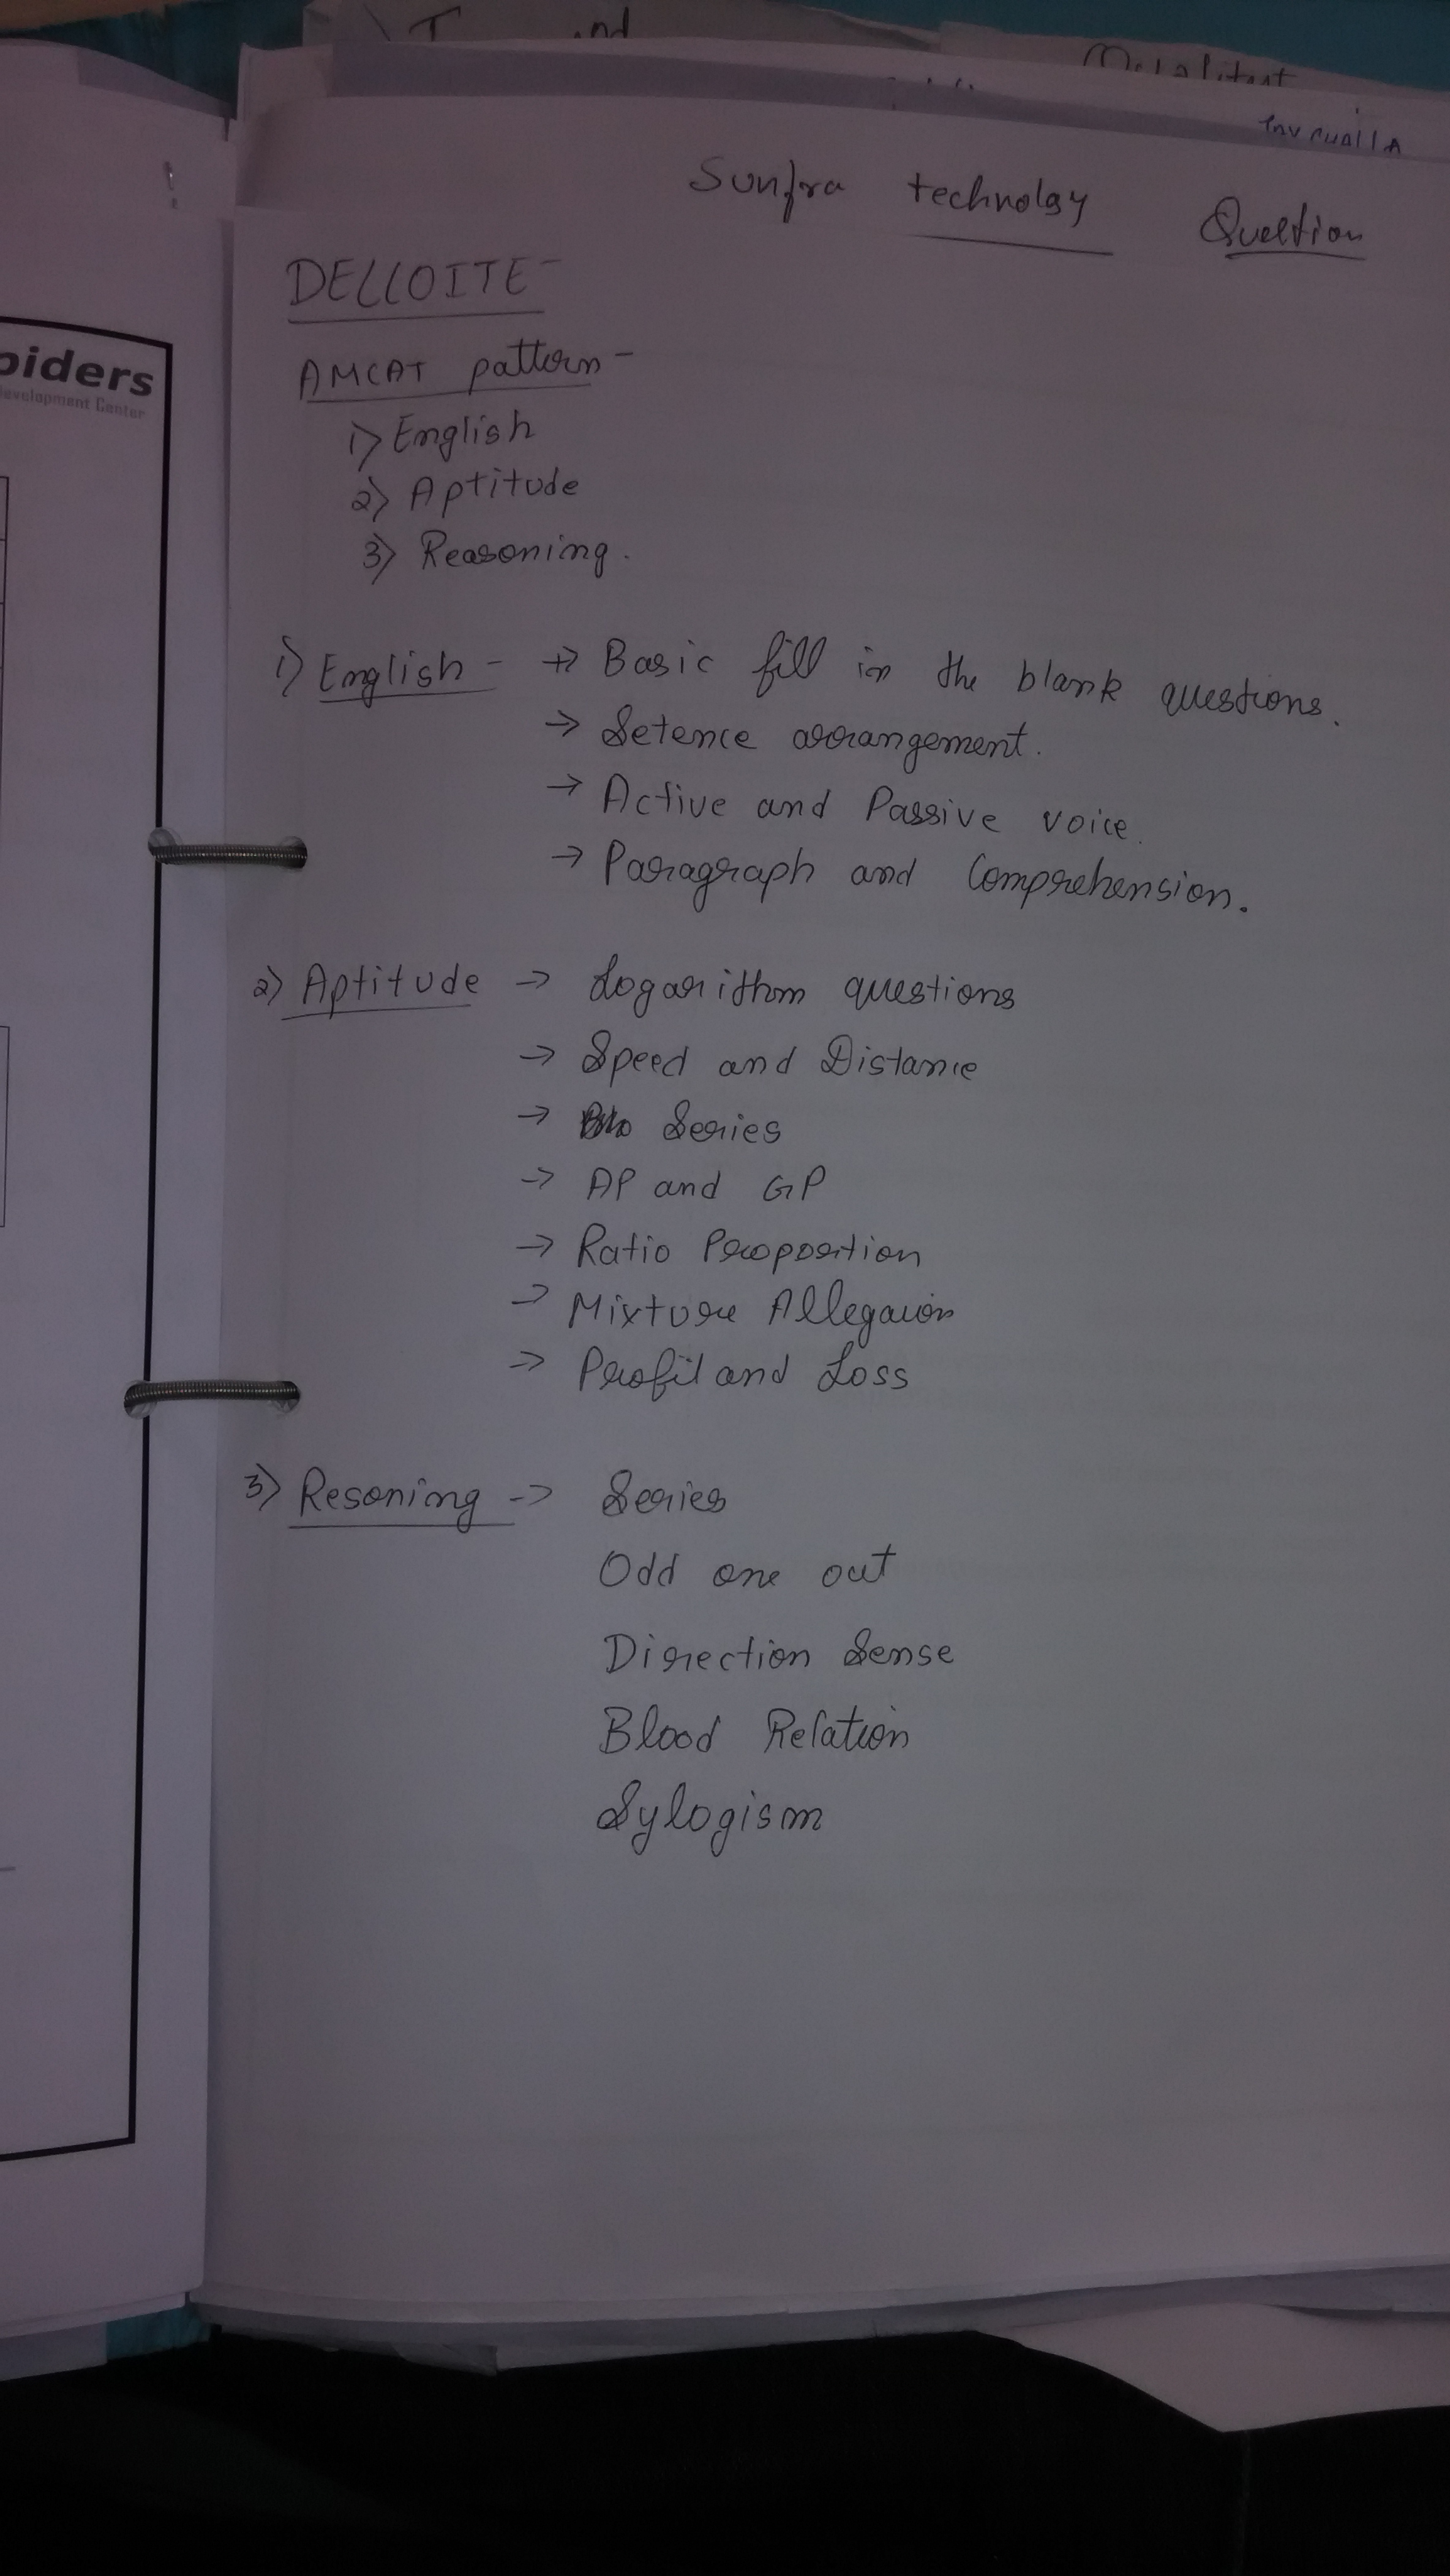 and
Sunfra technology Question
DELLOITE-
AMCAT pattern-
1) English
2) Aptitude
3) Reasoning.
piders
evelopment Center
1) English - → Basic fill in the blank questions.
→ Setence arrangement.
→ Active and Passive voice.
→ Paragraph and Comprehension.
2) Aptitude → Logarithm questions
→ Speed and Distance
→ Series
→ AP and GP
→ Ratio Proportion
→ Mixture Allegation
→ Profit and Loss
3) Resoning -> Series
Odd one out
Direction Sense
Blood Relation
Sylogism